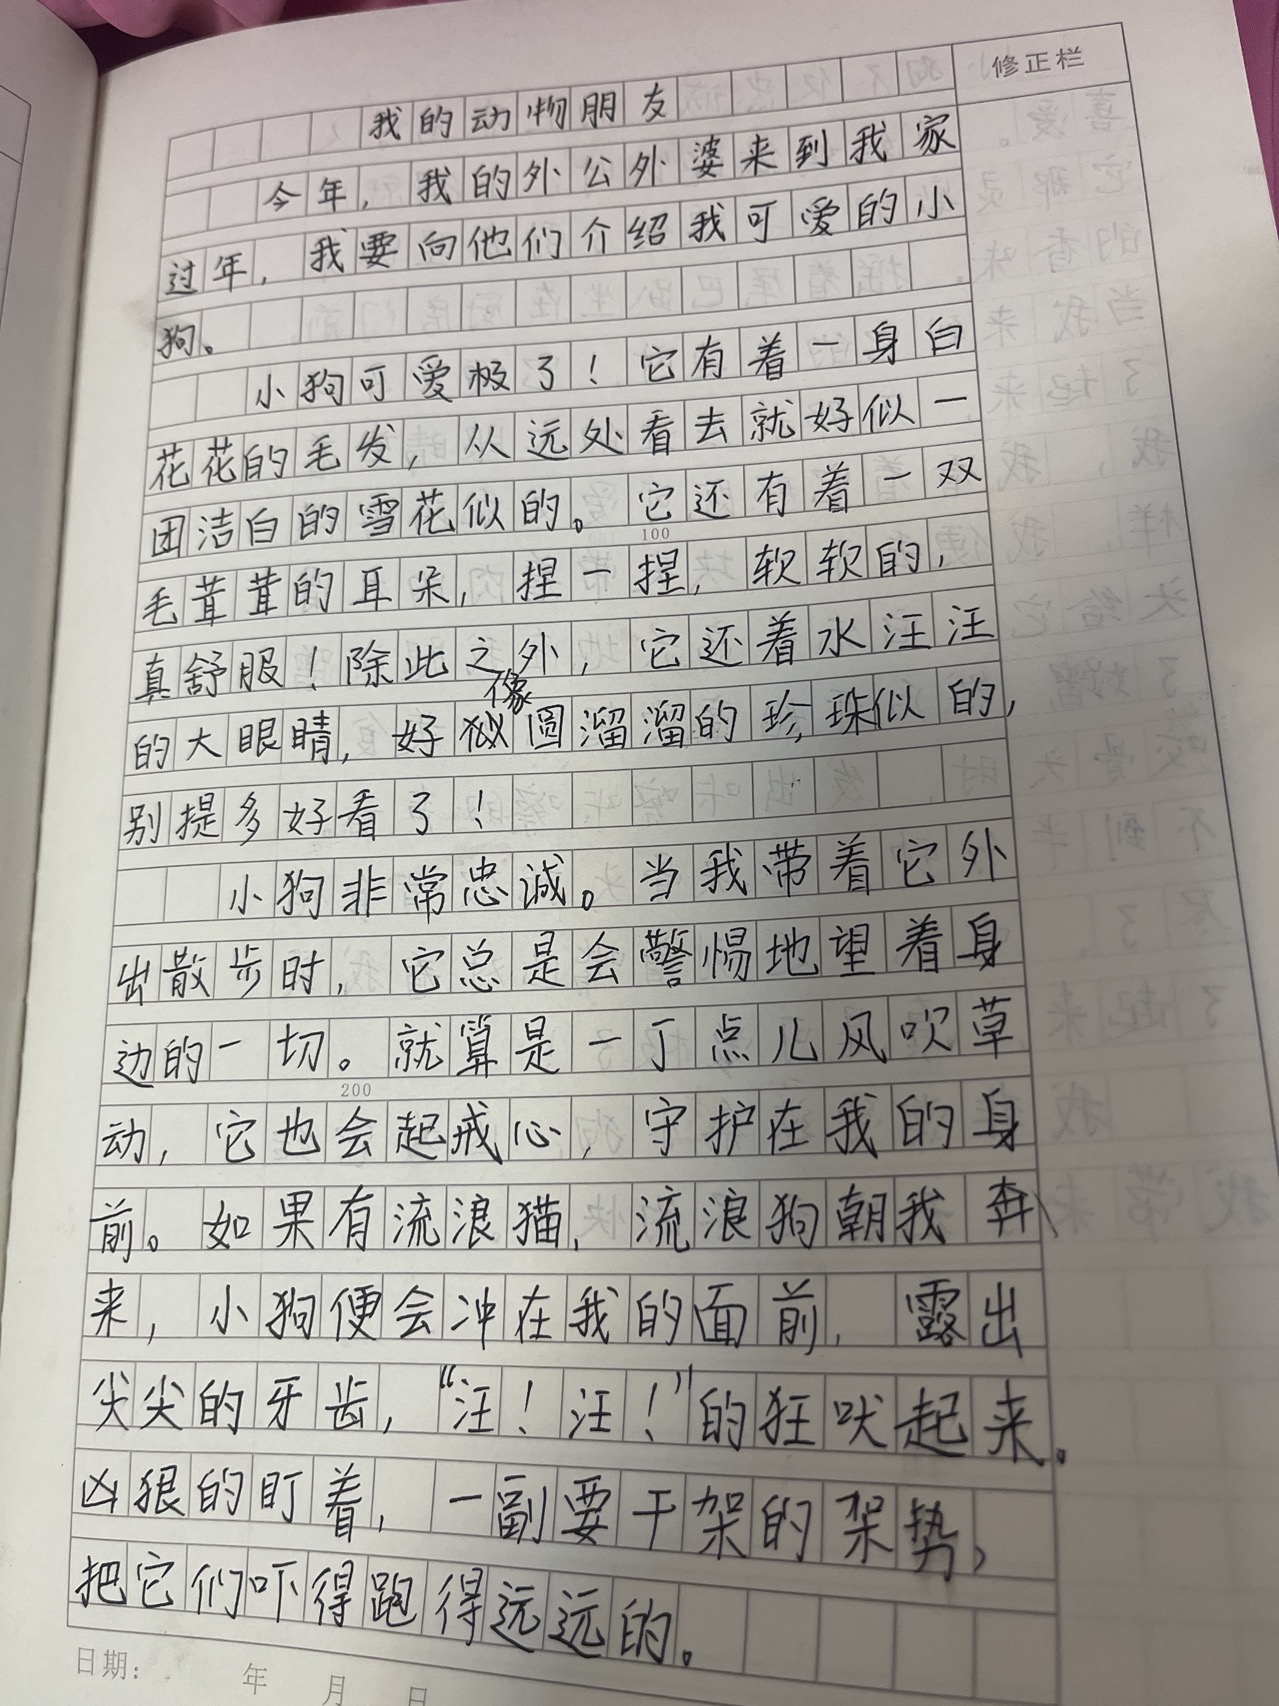 修正栏
我的动物朋友
今年，我的外公外婆来到我家
过年，我要向他们介绍我可爱的小
狗。
小狗可爱极了！它有着一身白
花花的毛发，从远处看去就好似一
团洁白的雪花似的。它还有着一双
100
毛茸茸的耳朵，捏一捏，软软的，
真舒服！除此之外，它还着水汪汪
的大眼睛，好像圆溜溜的珍珠似的，
别提多好看了！
小狗非常忠诚。当我带着它外
出散步时，它总是会警惕地望着身
边的一切。就算是一丁点儿风吹草
200
动，它也会起戒心，守护在我的身
前。如果有流浪猫、流浪狗朝我奔
来，小狗便会冲在我的面前，露出
尖尖的牙齿，“汪！汪！”的狂吠起来。
凶狠的盯着，一副要干架的架势，
把它们吓得跑得远远的。
日期： 年 月 日